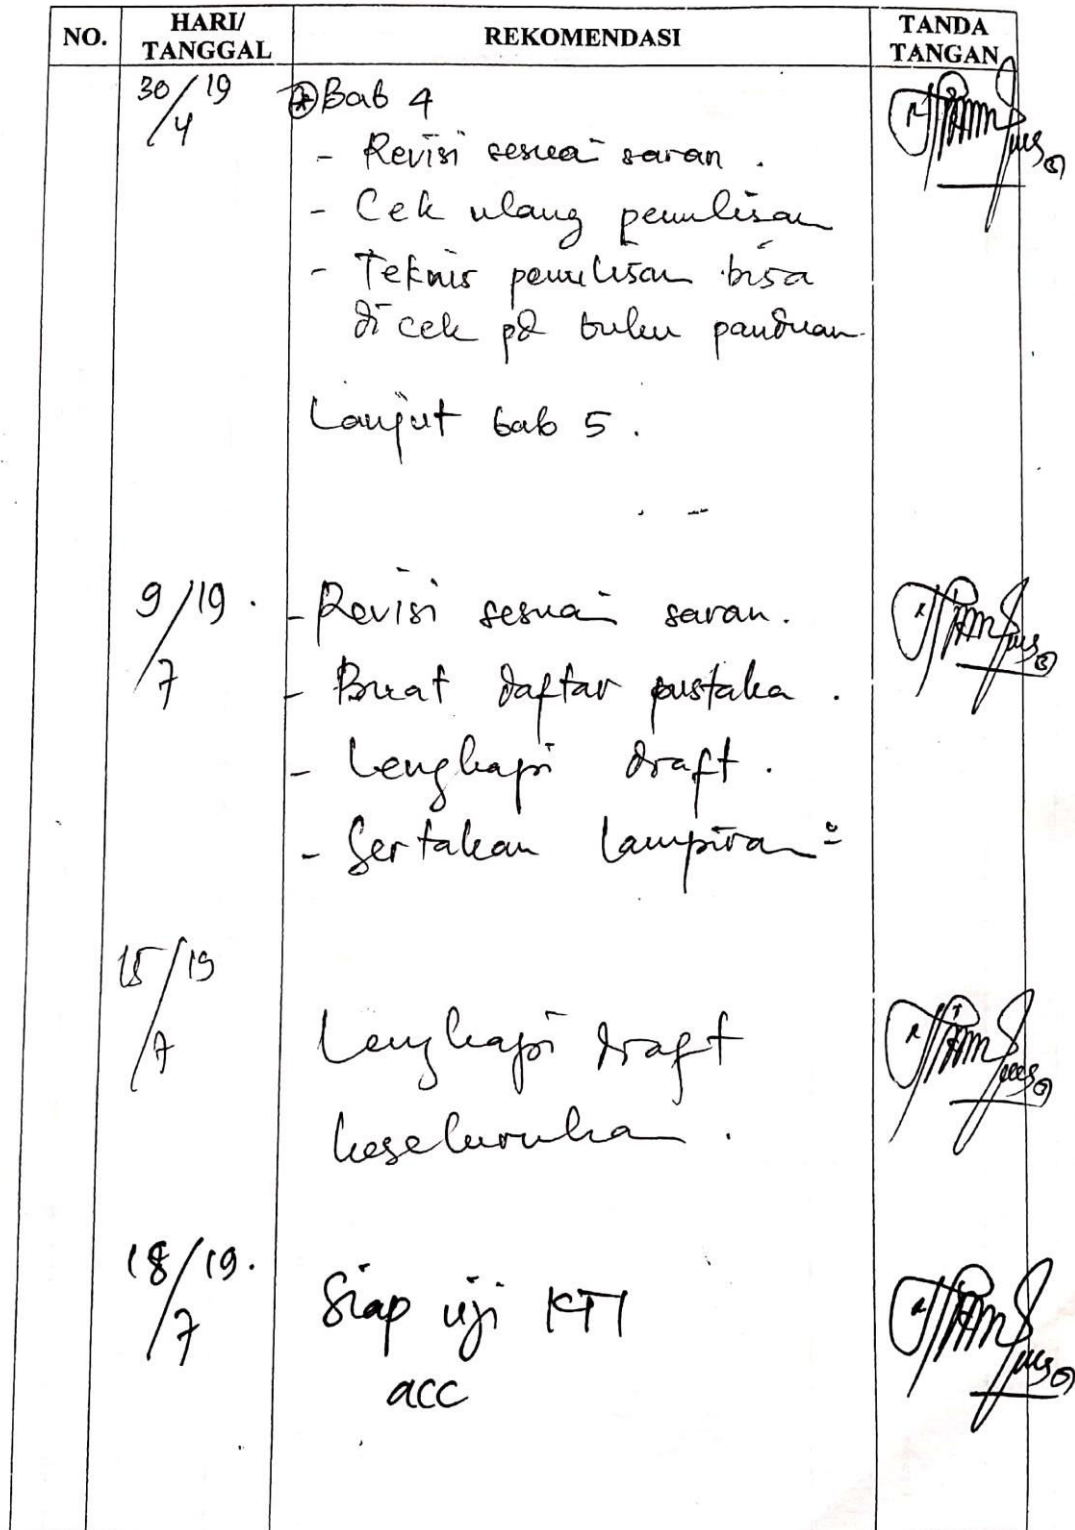 NO. HARI/ TANGGAL REKOMENDASI TANDA TANGAN
30/4 19 * Bab 4
- Revisi sesuai saran.
- Cek ulang penulisan
- Teknis penulisan bisa
di cek pd buku panduan.
Lanjut bab 5.
9/7 19. - Revisi sesuai saran.
- Buat daftar pustaka.
- Lengkapi draft.
- Sertakan lampiran²
15/7 19
Lengkapi draft
keseluruhan.
18/7 19. Siap uji KTI
acc